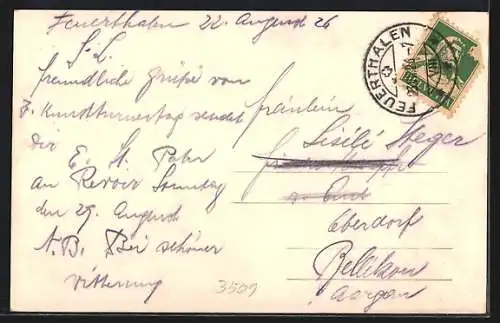 Feuerthalen 22. Augusd 26
S. L.
freundliche grüße von
Z. Kunstturnertag sendet
dir E. St. Pater
au Revoir Sonntag
den 29. Augusd
N.B. Bei schöner
Vitterung
3509
FEUERTHALEN
HELVETIA
fräulein
Liséli Steger
Eberdorf
Bellikon
Aargau